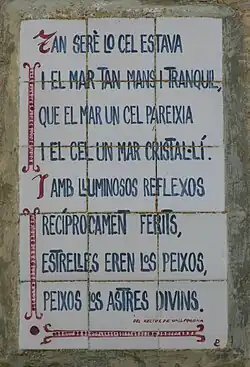 TAN SERÈ LO CEL ESTAVA
I EL MAR TAN MANS I TRANQUIL,
QUE EL MAR UN CEL PAREIXIA
I EL CEL UN MAR CRISTAL·LÍ.
I AMB LLUMINOSOS REFLEXOS
RECÍPROCAMENT FERITS,
ESTRELLES EREN LOS PEIXOS,
PEIXOS LOS ASTRES DIVINS.
DEL RECTOR DE VALLFOGONA